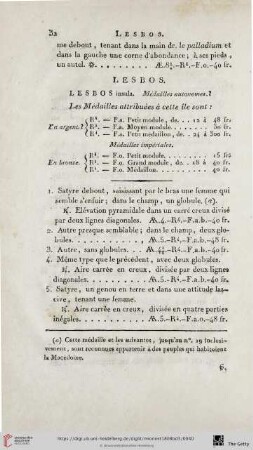 32 LESBOS.
me debout, tenant dans la main dr. le palladium et
dans la gauche une corne d'abondance; à ses pieds,
un autel. Æ.8½.-R⁴.-F.o.-40 fr.
LESBOS.
LESBOS insula. Médailles autonomes.
Les Médailles attribuées à cette île sont:
En argent. R⁴. — F.a. Petit module, de. . 12 à 48 fr.
R⁴. — F.a. Moyen module. . . . . 60 fr.
R⁸. — F.a. Petit médaillon, de . 24 à 300 fr.
Médailles impériales.
En bronze. — F.o. Petit module. . . . 15 fr.
— F.o. Grand module, de . 18 à 40 fr.
— F.o. Médaillon. . . . 40 fr.
1. Satyre debout, saisissant par le bras une femme qui
semble s'enfuir; dans le champ, un globule. (a).
℞. Elévation pyramidale dans un carré creux divisé
par deux lignes diagonales. Æ.4.-R⁶.-F.a.-40 fr.
2. Autre presque semblable; dans le champ, deux glo-
bules. Æ.5.-R⁴.-F.a.b.-40 fr.
3. Autre, sans globules. Æ.4½.-R⁴.-F.a.b.-40 fr.
4. Même type que le précédent, avec deux globules.
℞. Aire carrée en creux, divisée par deux lignes
diagonales. Æ.4.-R⁴.-F.a.b.-40 fr.
5. Satyre, un genou en terre et dans une attitude las-
cive, tenant une femme.
℞. Aire carrée en creux, divisée en quatre parties
inégales. Æ.5.-R⁴.-F.a.o.-48 fr.
(a) Cette médaille et les suivantes, jusqu'au n°. 19 inclusi-
vement, sont reconnues appartenir à des peuples qui habitoient
la Macédoine.
6.